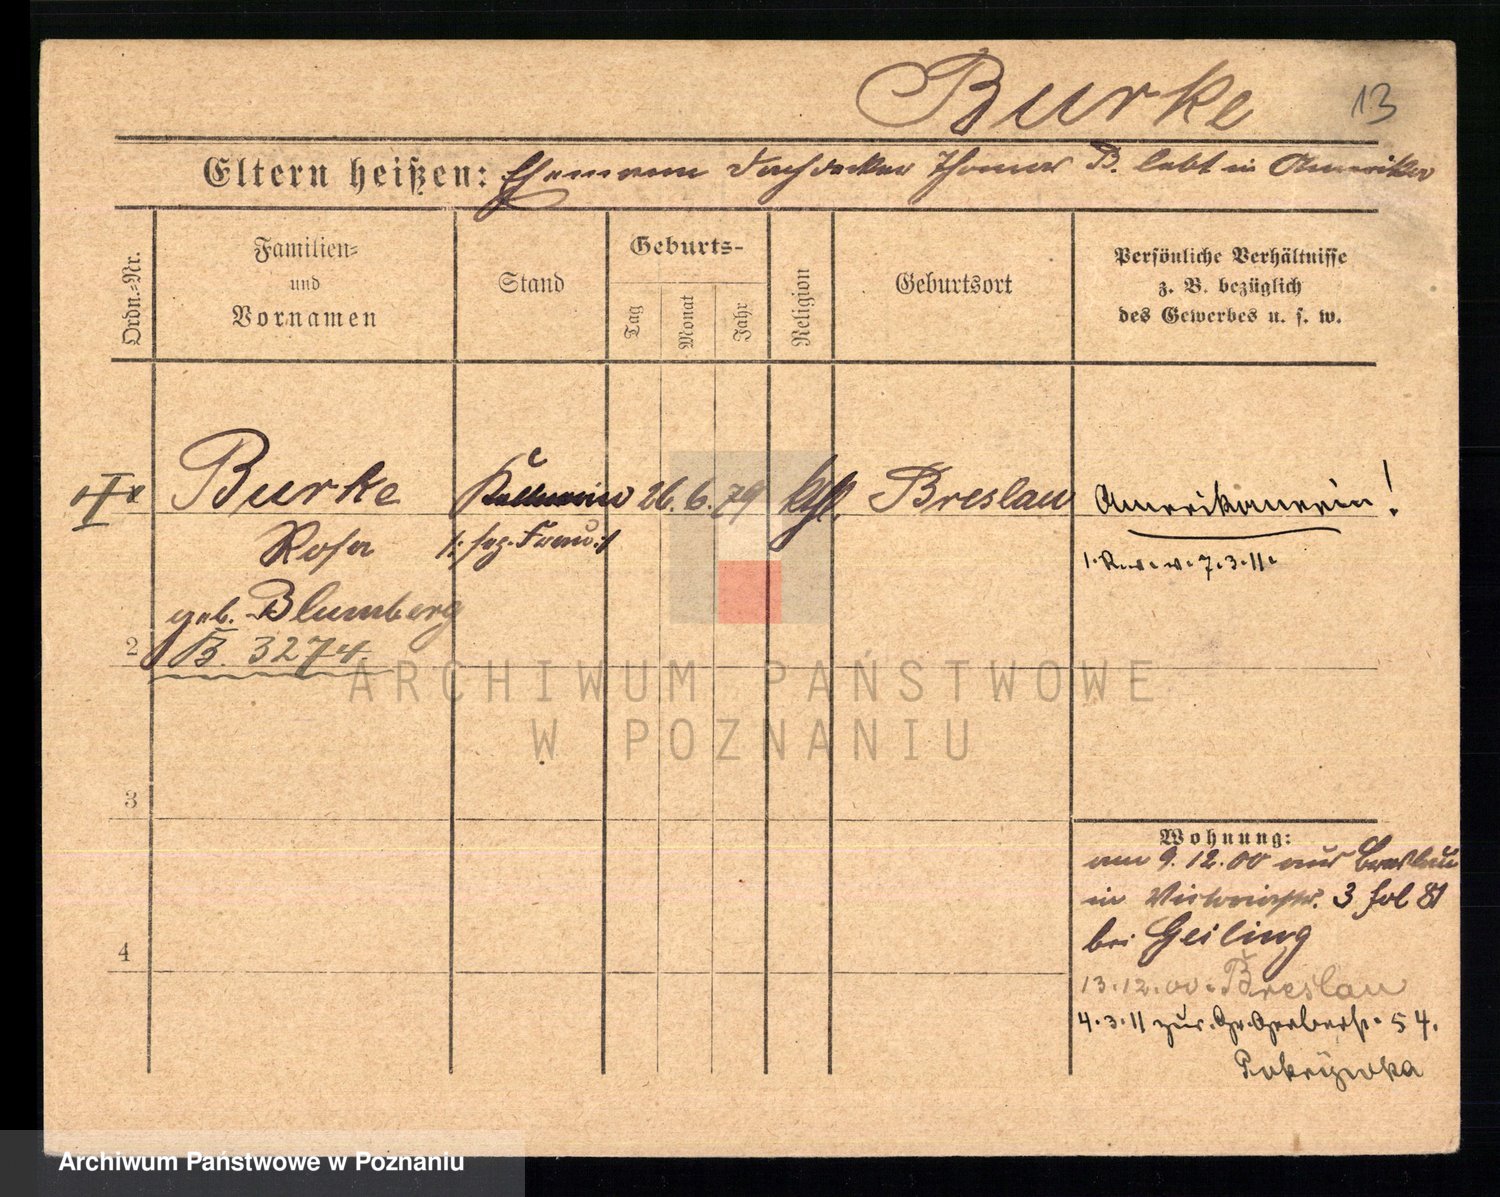 Burke
13
Eltern heißen: Ehemann Dachdecker Thomas B. lebt in Amerika
Ordn.-Nr.
Familien-
und
Vornamen
Stand
Geburts-
Tag
Monat
Jahr
Religion
Geburtsort
Persönliche Verhältnisse
z. B. bezüglich
des Gewerbes u. s. w.
Burke
Kellnerin
26. 6. 79
kth.
Breslau
Amerikanerin!
Rosa
geb. Blumberg
7.3.11.
2
B. 3274
3
4
Wohnung:
am 9.12.00 aus Breslau
in Victoriastr. 3 fol 81
bei Geiling
13.12.00. Breslau
4.3.11 zur. Gr. Gerberstr. 54.
Pokrzywka
ARCHIWUM PAŃSTWOWE
W POZNANIU
Archiwum Państwowe w Poznaniu